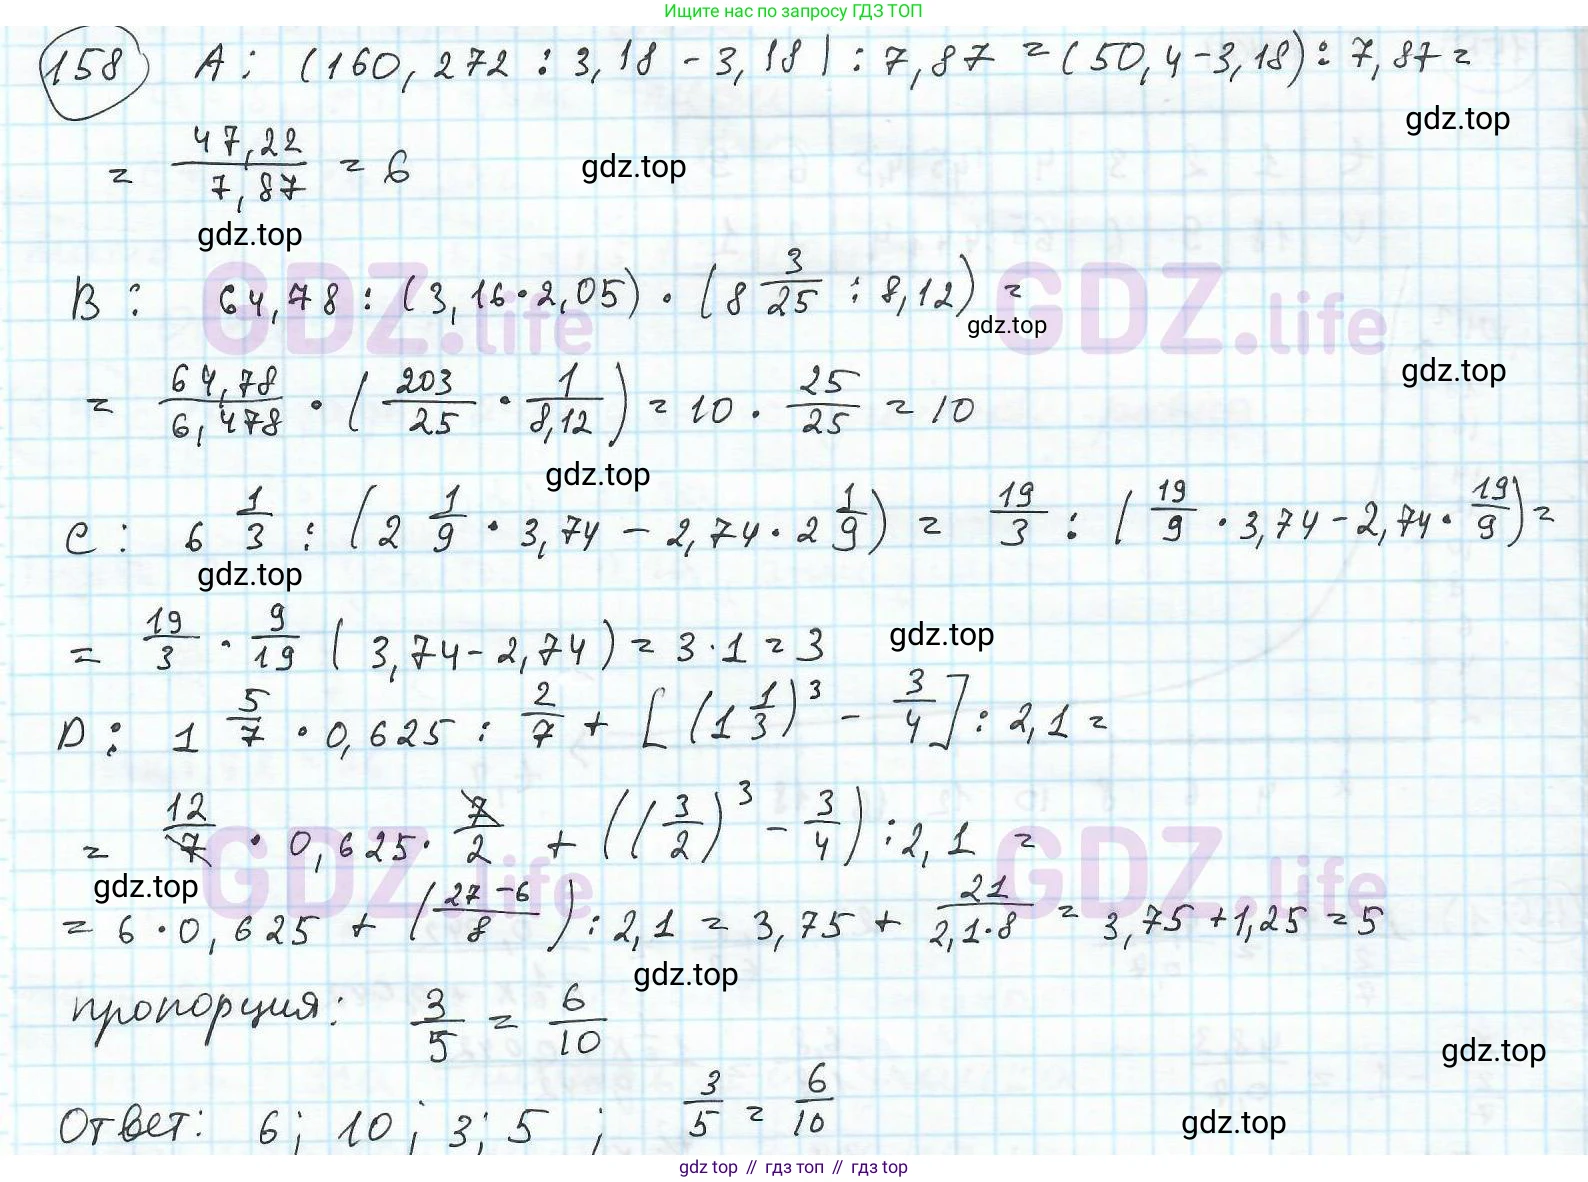 Ищите нас по запросу ГДЗ ТОП
158 A: (160,272 : 3,18 - 3,18) : 7,87 = (50,4-3,18) : 7,87 =
gdz.top
= 47,22/7,87 = 6
gdz.top
gdz.top
GDZ.life GDZ.life
B: 64,78 : (3,16·2,05) · (8 3/25 : 8,12) =
gdz.top
gdz.top
= 64,78/6,478 · (203/25 · 1/8,12) = 10 · 25/25 = 10
gdz.top
C: 6 1/3 : (2 1/9 · 3,74 - 2,74 · 2 1/9) = 19/3 : (19/9 · 3,74 - 2,74 · 19/9) =
gdz.top
= 19/3 · 9/19 (3,74 - 2,74) = 3 · 1 = 3
gdz.top
D: 1 5/7 · 0,625 : 2/7 + [(1 1/3)³ - 3/4] : 2,1 =
= 12/7 · 0,625 · 7/2 + ((3/2)³ - 3/4) : 2,1 =
GDZ.life GDZ.life
gdz.top
= 6 · 0,625 + (27-6/8) : 2,1 = 3,75 + 21/2,1·8 = 3,75 + 1,25 = 5
gdz.top
пропорция: 3/5 = 6/10
gdz.top
Ответ: 6; 10; 3; 5 ; 3/5 = 6/10
gdz.top
gdz top // гдз топ // гдз top